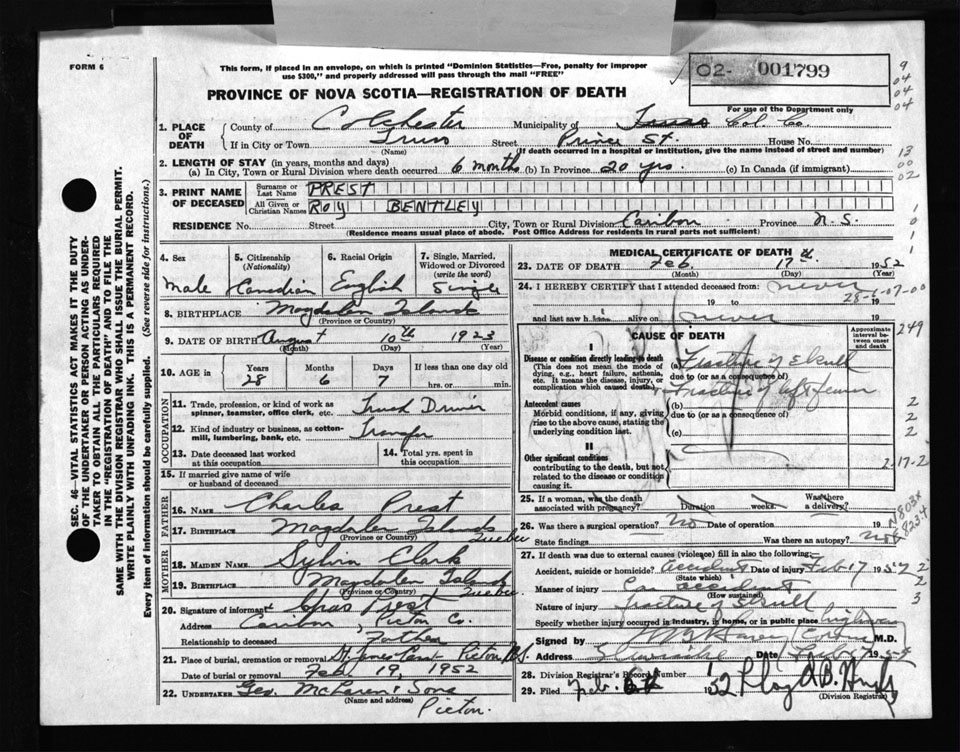 FORM 6
This form, if placed in an envelope, on which is printed "Dominion Statistics—Free, penalty for improper
use $300," and properly addressed will pass through the mail "FREE"
02- 001799
PROVINCE OF NOVA SCOTIA—REGISTRATION OF DEATH
For use of the Department only
9
04
04
04
1. PLACE OF DEATH
County of Colchester Municipality of Col. Co.
If in City or Town Truro Street Prince St. House No.
(Name) (If death occurred in a hospital or institution, give the name instead of street and number)
2. LENGTH OF STAY (in years, months and days)
(a) In City, Town or Rural Division where death occurred 6 months (b) In Province 20 yrs. (c) In Canada (if immigrant)
13
00
02
3. PRINT NAME OF DECEASED
Surname or Last Name PREST
All Given or Christian Names ROY BENTLEY
RESIDENCE No. Street City, Town or Rural Division Caribou Province N.S.
(Residence means usual place of abode. Post Office Address for residents in rural parts not sufficient)
1
0
1
1
SEC. 46—VITAL STATISTICS ACT MAKES IT THE DUTY
OF THE UNDERTAKER OR PERSON ACTING AS UNDER-
TAKER TO OBTAIN ALL THE PARTICULARS REQUIRED
IN THE "REGISTRATION OF DEATH" AND TO FILE THE
SAME WITH THE DIVISION REGISTRAR WHO SHALL ISSUE THE BURIAL PERMIT.
WRITE PLAINLY WITH UNFADING INK. THIS IS A PERMANENT RECORD.
Every item of information should be carefully supplied. (See reverse side for instructions.)
4. Sex
Male
5. Citizenship
(Nationality)
Canadian
6. Racial Origin
English
7. Single, Married,
Widowed or Divorced
(write the word)
Single
8. BIRTHPLACE Magdalen Islands
(Province or Country)
9. DATE OF BIRTH August 10th 1923
(Month) (Day) (Year)
10. AGE in Years Months Days If less than one day old
28 6 7 hrs. or min.
OCCUPATION
11. Trade, profession, or kind of work as
spinner, teamster, office clerk, etc. Truck Driver
12. Kind of industry or business, as cotton-
mill, lumbering, bank, etc. Transfer
13. Date deceased last worked
at this occupation
14. Total yrs. spent in
this occupation
15. If married give name of wife
or husband of deceased
FATHER
16. NAME Charles Prest
17. BIRTHPLACE Magdalen Islands
(Province or Country) Quebec
MOTHER
18. MAIDEN NAME Sylvia Clark
19. BIRTHPLACE Magdalen Islands
(Province or Country) Quebec
20. Signature of informant Chas Prest
Address Caribou, Pictou Co.
Relationship to deceased Father
21. Place of burial, cremation or removal Pictou N.S.
Date of burial or removal Feb 19, 1952
22. UNDERTAKER Geo. McLaren & Sons
(Name and address)
Pictou.
MEDICAL CERTIFICATE OF DEATH
23. DATE OF DEATH Feb. 17th 1952
(Month) (Day) (Year)
24. I HEREBY CERTIFY that I attended deceased from never
19 to 19
and last saw h alive on never 19
CAUSE OF DEATH
Approximate
interval be-
tween onset
and death
249
I
Disease or condition directly leading to death
(This does not mean the mode of
dying, e.g., heart failure, asthenia,
etc. It means the disease, injury, or
complication which caused death.)
Fracture of Skull
due to (or as a consequence of)
Fracture of left femur
Antecedent causes
Morbid conditions, if any, giving
rise to the above cause, stating the
underlying condition last.
(b)
due to (or as a consequence of)
(c)
2
2
2
II
Other significant conditions
contributing to the death, but not
related to the disease or condition
causing it.
2-17-2
25. If a woman, was the death
associated with pregnancy? Duration weeks. Was there
a delivery?
N803X
26. Was there a surgical operation? No Date of operation 19
State findings Was there an autopsy? No
27. If death was due to external causes (violence) fill in also the following:
Accident, suicide or homicide? accident Date of injury Feb 17 1952
(State which)
Manner of injury Car accident
(How sustained)
Nature of injury fracture of skull
Specify whether injury occurred in industry, in home, or in public place highway
2
2
3
Signed by M.D.
Address Date 19
28. Division Registrar's Record Number
29. Filed Feb. 1952 Lloyd B.
(Division Registrar)